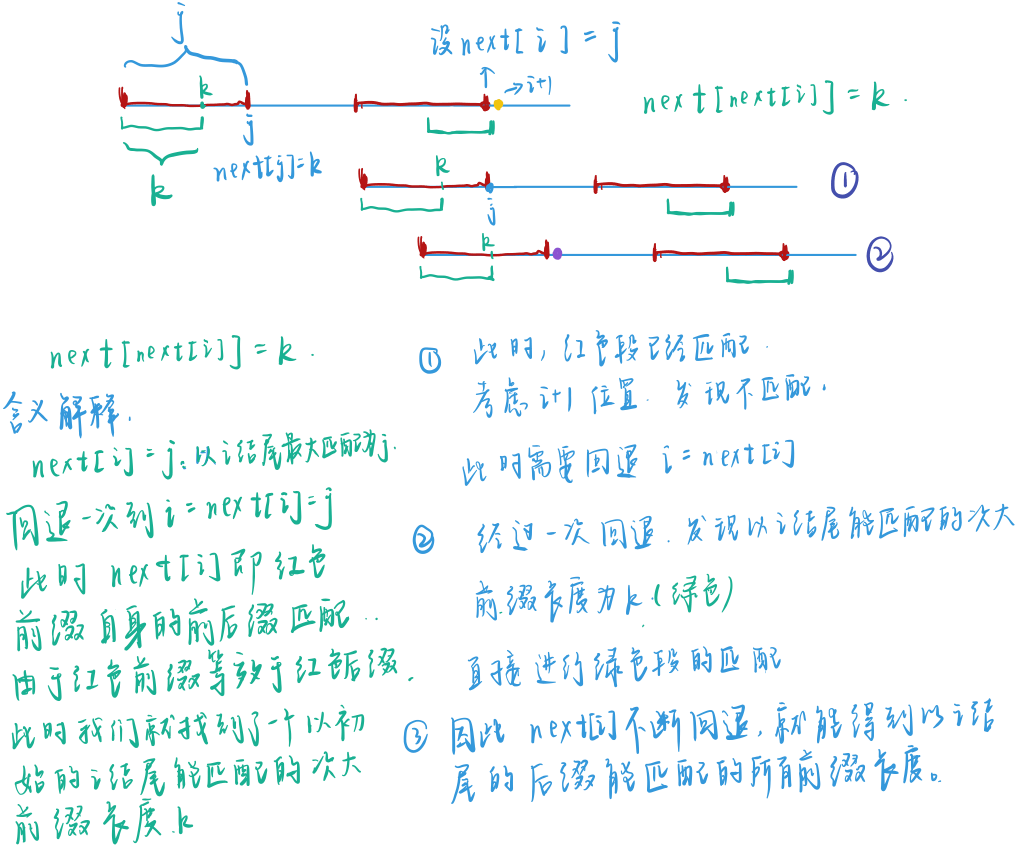 j
设next[i]=j
k
→i+1
next[next[i]]=k.
j
next[j]=k
k
k
①
j
k
②
next[next[i]]=k.
含义解释.
next[i]=j:以i结尾最大匹配为j.
回退一次到i=next[i]=j
此时 next[i]即红色
前缀自身的前后缀匹配..
由于红色前缀等效于红色后缀.
此时我们就找到了一个以初
始的i结尾能匹配的次大
前缀长度.k
① 此时,红色段已经匹配.
考虑i+1位置.发现不匹配.
此时需要回退 i=next[i]
② 经过一次回退.发现以i结尾能匹配的次大
前缀长度为k.(绿色)
直接进行绿色段的匹配
③ 因此 next[i]不断回退,就能得到以i结
尾的后缀能匹配的所有前缀长度。